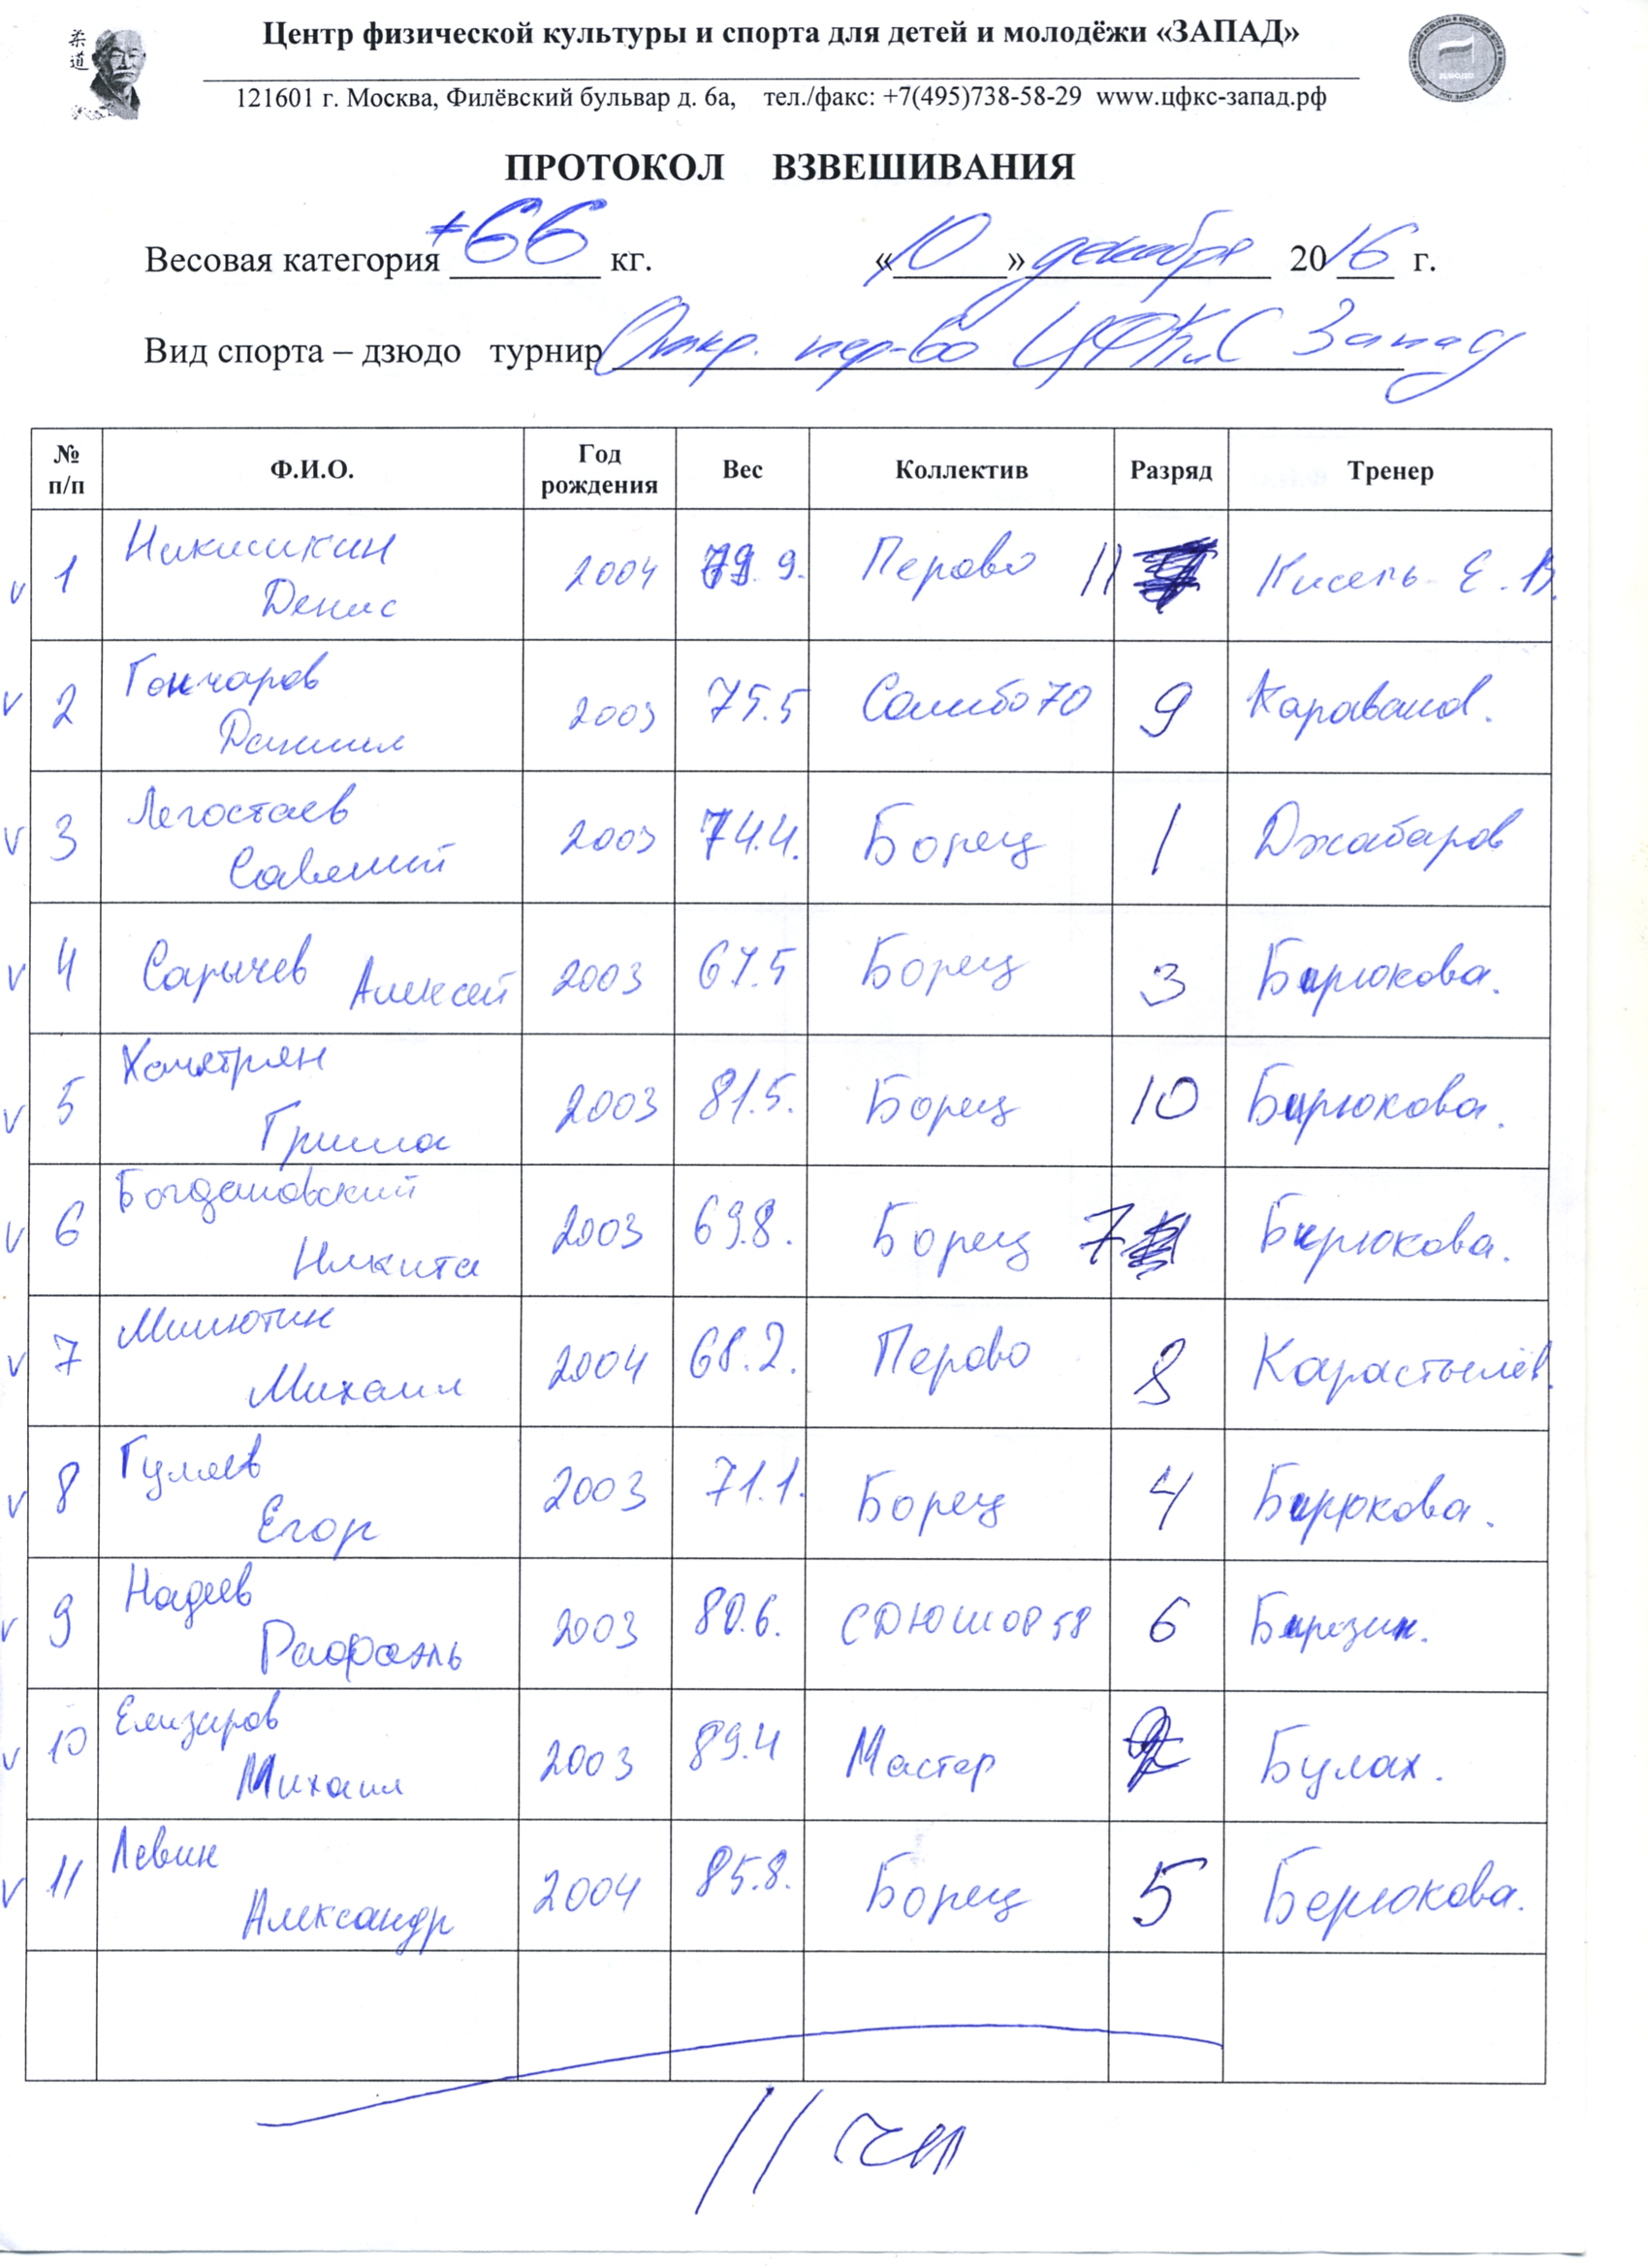 柔道
Центр физической культуры и спорта для детей и молодёжи «ЗАПАД»
121601 г. Москва, Филёвский бульвар д. 6а, тел./факс: +7(495)738-58-29 www.цфкс-запад.рф
ПРОТОКОЛ ВЗВЕШИВАНИЯ
Весовая категория +66 кг. «10» декабря 2016 г.
Вид спорта – дзюдо турнир Откр. пер-во ЦФКиС Запад
№ п/п Ф.И.О. Год рождения Вес Коллектив Разряд Тренер
v 1 Никишкин Денис 2004 Перово 11 Кисель Е.В.
v 2 Гончаров Даниил 2003 75.5 Самбо 70 9 Караванов.
v 3 Легостаев Савелий 2003 74.4. Борец 1 Джабаров
v 4 Сарычев Алексей 2003 67.5 Борец 3 Бирюкова.
v 5 Хачятрян Гриша 2003 81.5. Борец 10 Бирюкова.
v 6 Богдановский Никита 2003 69.8. Борец 7 Бирюкова.
v 7 Милютин Михаил 2004 68.2. Перово 8 Карастылёв.
v 8 Гуляев Егор 2003 71.1. Борец 4 Бирюкова.
v 9 Надеев Рафаэль 2003 80.6. СДЮШОР 58 6 Бирезин.
v 10 Елизаров Михаил 2003 89.4 Мастер 2 Булах.
v 11 Левин Александр 2004 85.8. Борец 5 Берюкова.
11 чел